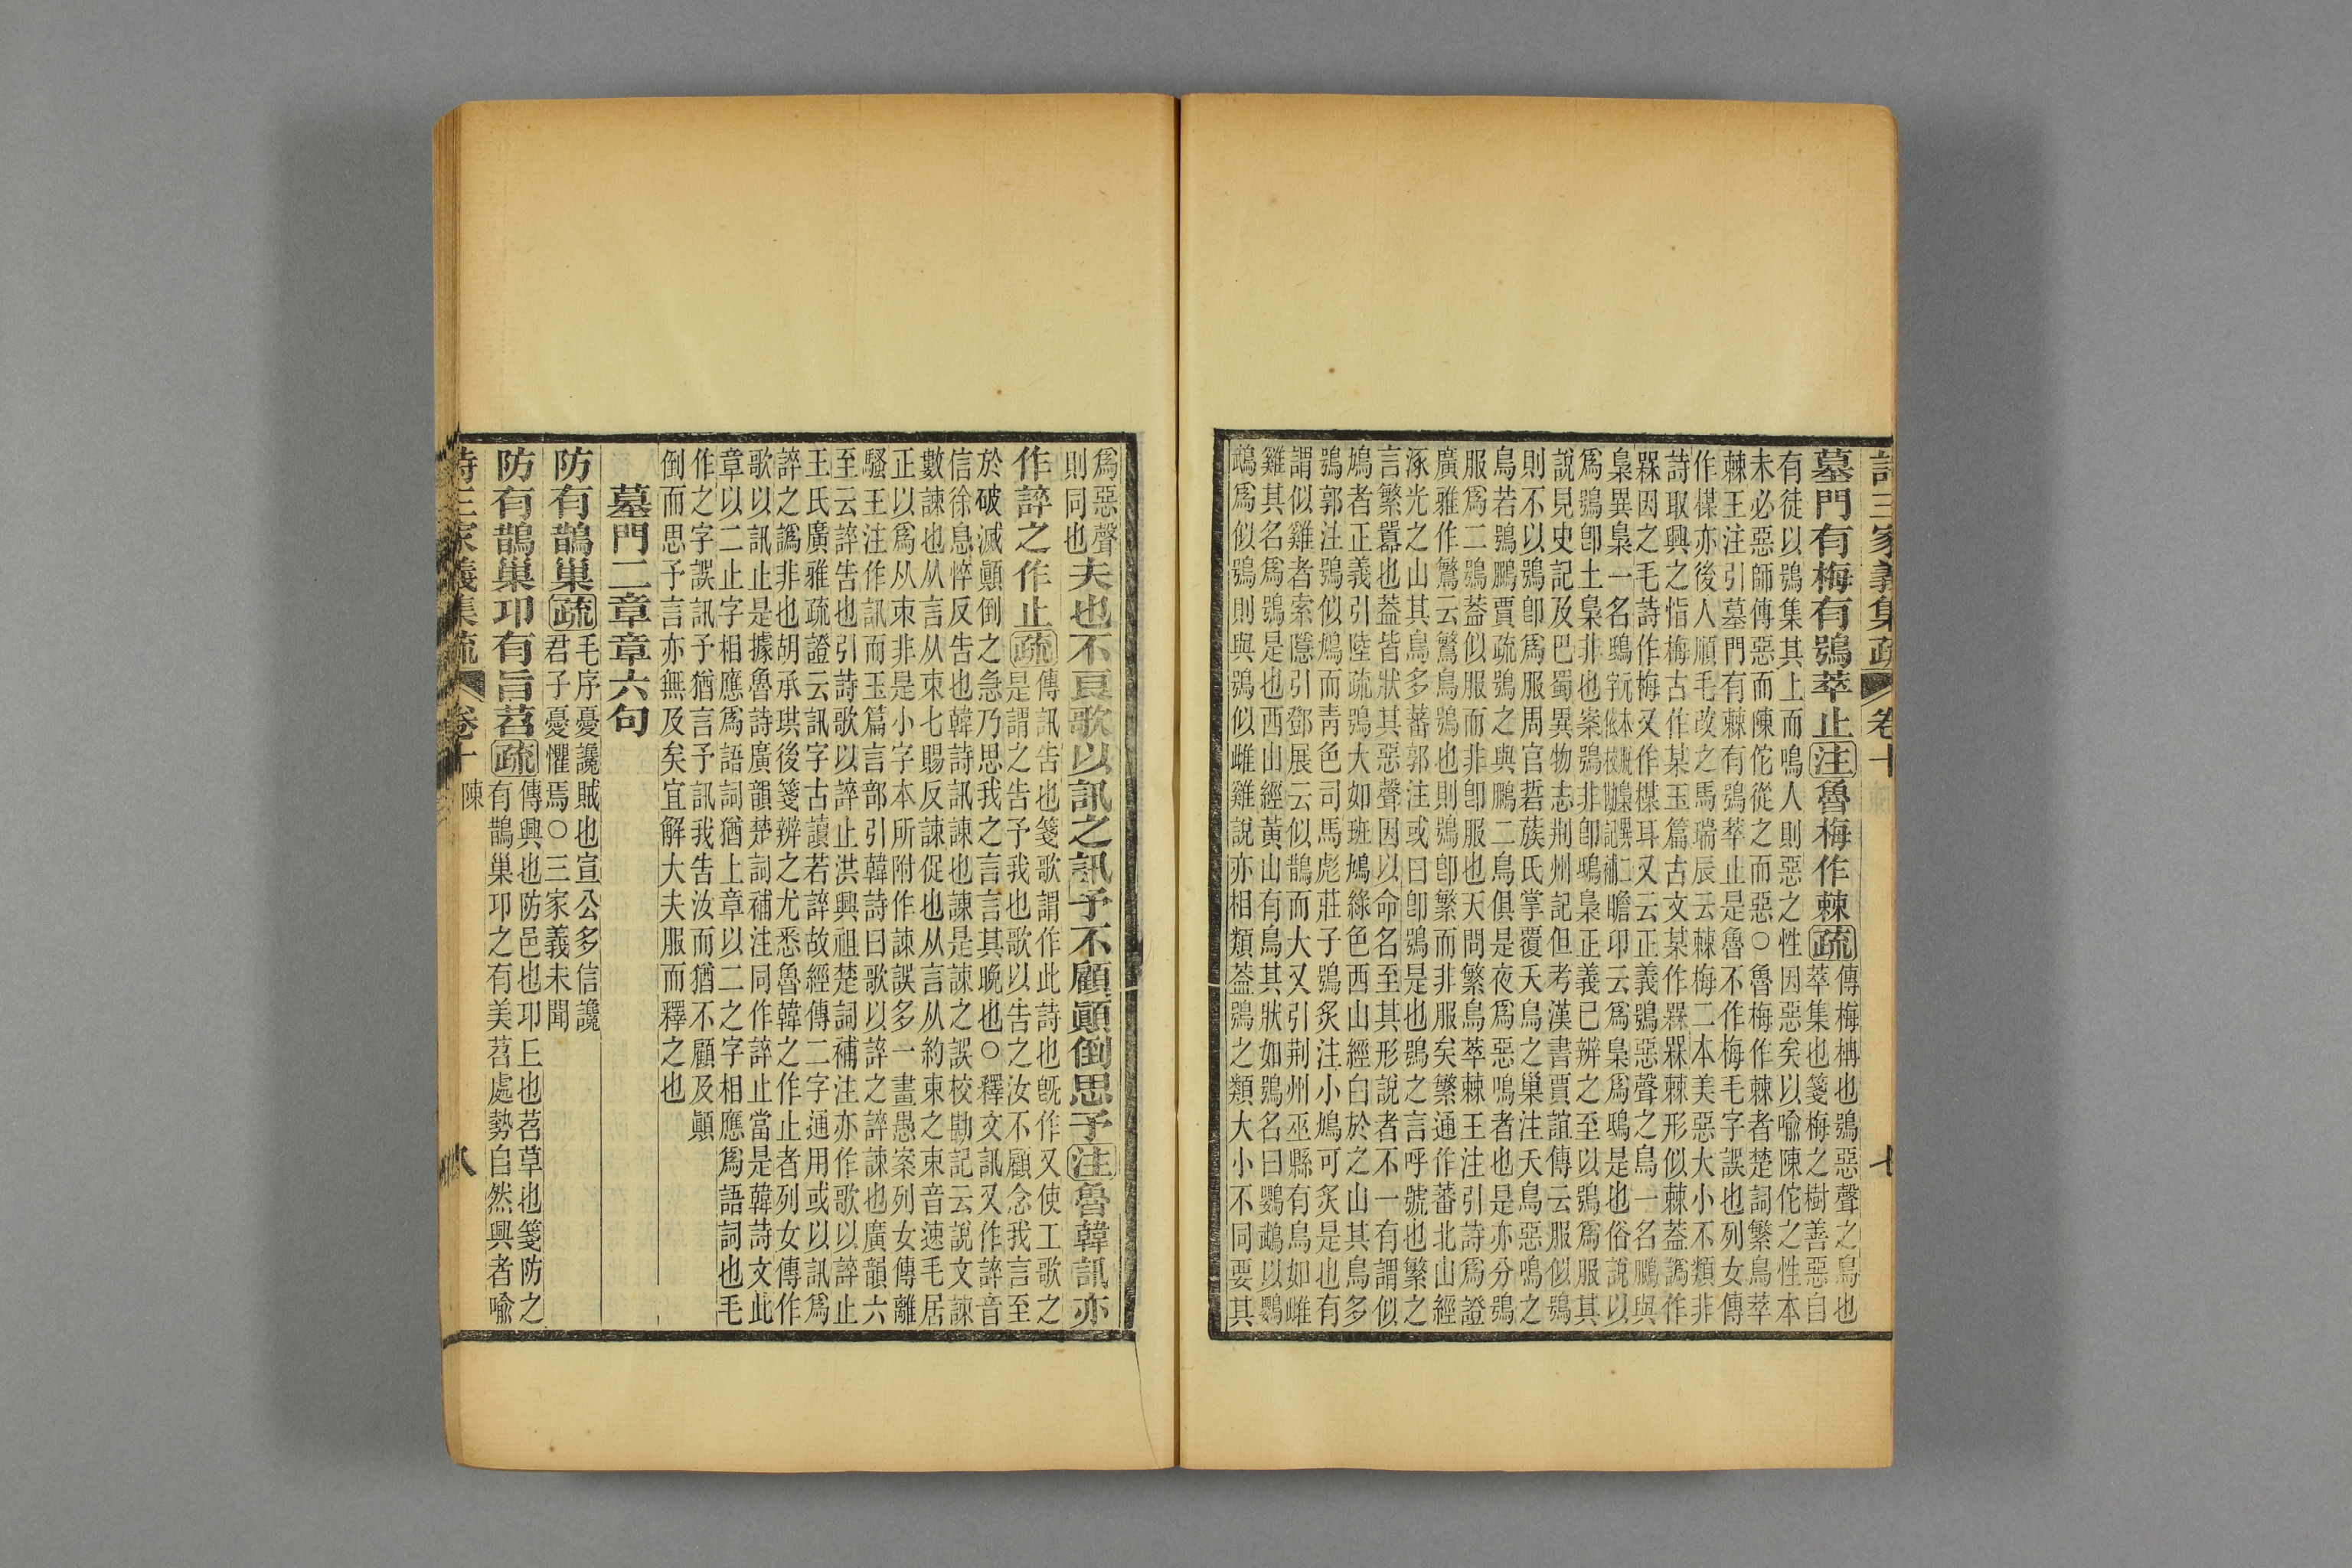 詩三家義集疏 卷十 七
墓門有梅有鴞萃止注魯梅作棘疏傳梅柟也鴞惡聲之鳥也
萃集也箋梅之樹善惡自
有徒以鴞集其上而鳴人則惡之性因惡矣以喻陳佗之性本
未必惡師傅惡而陳佗從之而惡○魯梅作棘者楚詞繁鳥萃
棘王注引墓門有棘有鴞萃止是魯不作梅毛字誤也列女傳
作楳亦後人順毛改之馬瑞辰云棘梅二木美惡大小不類非
詩取興之恉梅古作某玉篇古文某作槑槑棘形似棘葢譌作
槑因之毛詩作梅又作楳耳又云正義鴞惡聲之鳥一名鵩與
梟異梟一名鴟瞻卬云爲梟爲鴟是也俗說以
爲鴞卽土梟非也案鴞非卽鴟梟正義已辨之至以鴞爲服其
說見史記及巴蜀異物志荆州記但考漢書賈誼傳云服似鴞
則不以鴞卽爲服周官硩蔟氏掌覆夭鳥之巢注夭鳥惡鳴之
鳥若鴞鵩賈疏鴞之與鵩二鳥俱是夜爲惡鳴者也是亦分鴞
服爲二鴞葢似服而非卽服也天問繁鳥萃棘王注引詩爲證
廣雅作鷩云鷩鳥鴞也則鴞卽繁而非服矣繁通作蕃北山經
涿光之山其鳥多蕃郭注或曰卽鴞是也鴞之言呼號也繁之
言繁囂也葢皆狀其惡聲因以命名至其形說者不一有謂似
鳩者正義引陸疏鴞大如班鳩綠色西山經白於之山其鳥多
鴞郭注鴞似鳩而靑色司馬彪莊子鴞炙注小鳩可炙是也有
謂似雞者索隱引鄧展云似鵲而大又引荆州巫縣有鳥如雌
雞其名爲鴞是也西山經黃山有鳥其狀如鴞名曰鸚鵡以鸚
鵡爲似鴞則與鴞似雌雞說亦相類葢鴞之類大小不同要其
爲惡聲
則同也夫也不良歌以訊之訊予不顧顚倒思予注魯韓訊亦
作誶之作止疏傳訊告也箋歌謂作此詩也旣作又使工歌之
是謂之告予我也歌以告之汝不顧念我言至
於破滅顚倒之急乃思我之言言其晚也○釋文訊又作誶音
信徐息悴反告也韓詩訊諫也諫是諫之誤校勘記云說文諫
數諫也从言从朿七賜反諫促也从言从約束之束音速毛居
正以爲从朿非是小字本所附作諫誤多一畫愚案列女傳離
騷王注作訊而玉篇言部引韓詩曰歌以誶之誶諫也廣韻六
至云誶告也引詩歌以誶止洪興祖楚詞補注亦作歌以誶止
王氏廣雅疏證云訊字古讀若誶故經傳二字通用或以訊爲
誶之譌非也胡承珙後箋辨之尤悉魯韓之作止者列女傳作
歌以訊止是據魯詩廣韻楚詞補注同作誶止當是韓詩文此
章以二止字相應爲語詞猶上章以二之字相應爲語詞也毛
作之字誤訊予猶言予訊我告汝而猶不顧及顚
倒而思予言亦無及矣宜解大夫服而釋之也
墓門二章章六句
防有鵲巢疏毛序憂讒賊也宣公多信讒
君子憂懼焉○三家義未聞
防有鵲巢卭有旨苕疏傳興也防邑也卭丘也苕草也箋防之
有鵲巢卭之有美苕處勢自然興者喻
詩三家義集疏 卷十 陳 八